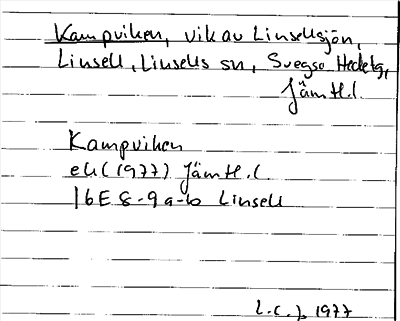 Kampviken, vik av Linsellsjön,
Linsell, Linsells sn, Svegs
Jämtl.
Kampviken
ek (1977) Jämtl. l.
16E 8-9 a-b Linsell
1977